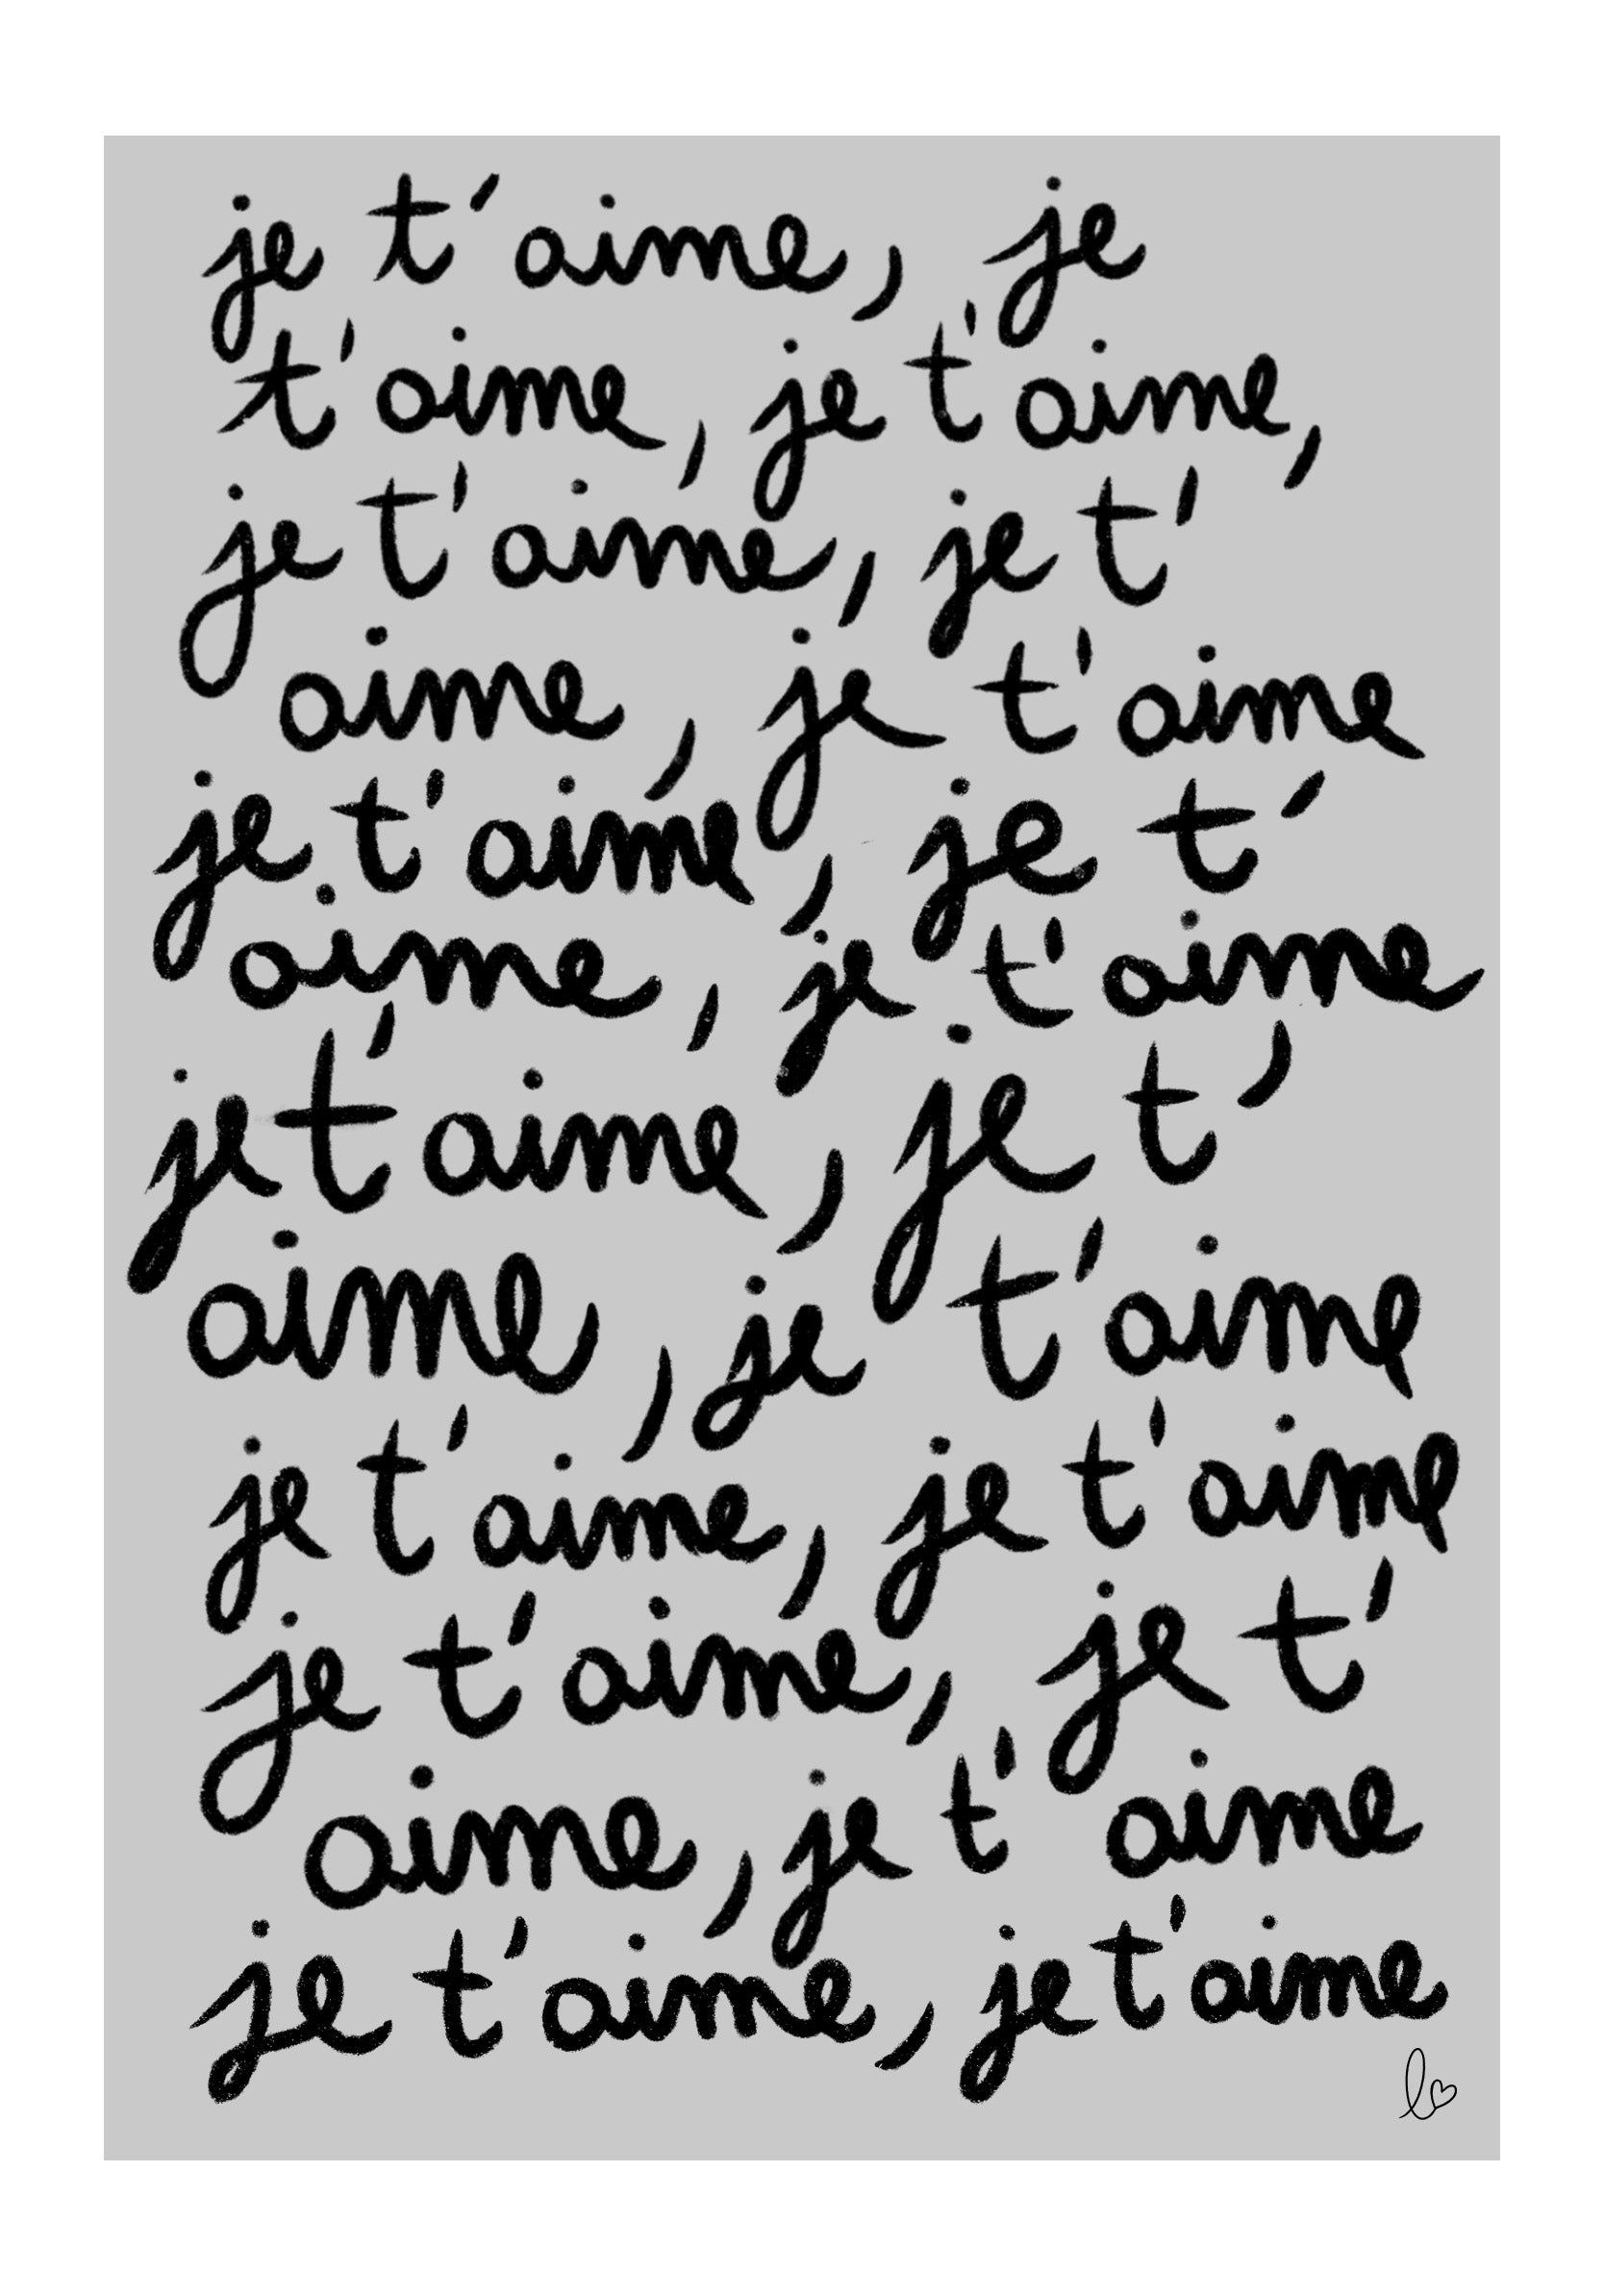 je t'aime, je
t'aime, je t'aime,
je t'aime, je t'
aime, je t'aime
je t'aime, je t'
aime, je t'aime
je t'aime, je t'
aime, je t'aime
je t'aime, je t'aime
je t'aime, je t'
aime, je t' aime
je t'aime, je t'aime